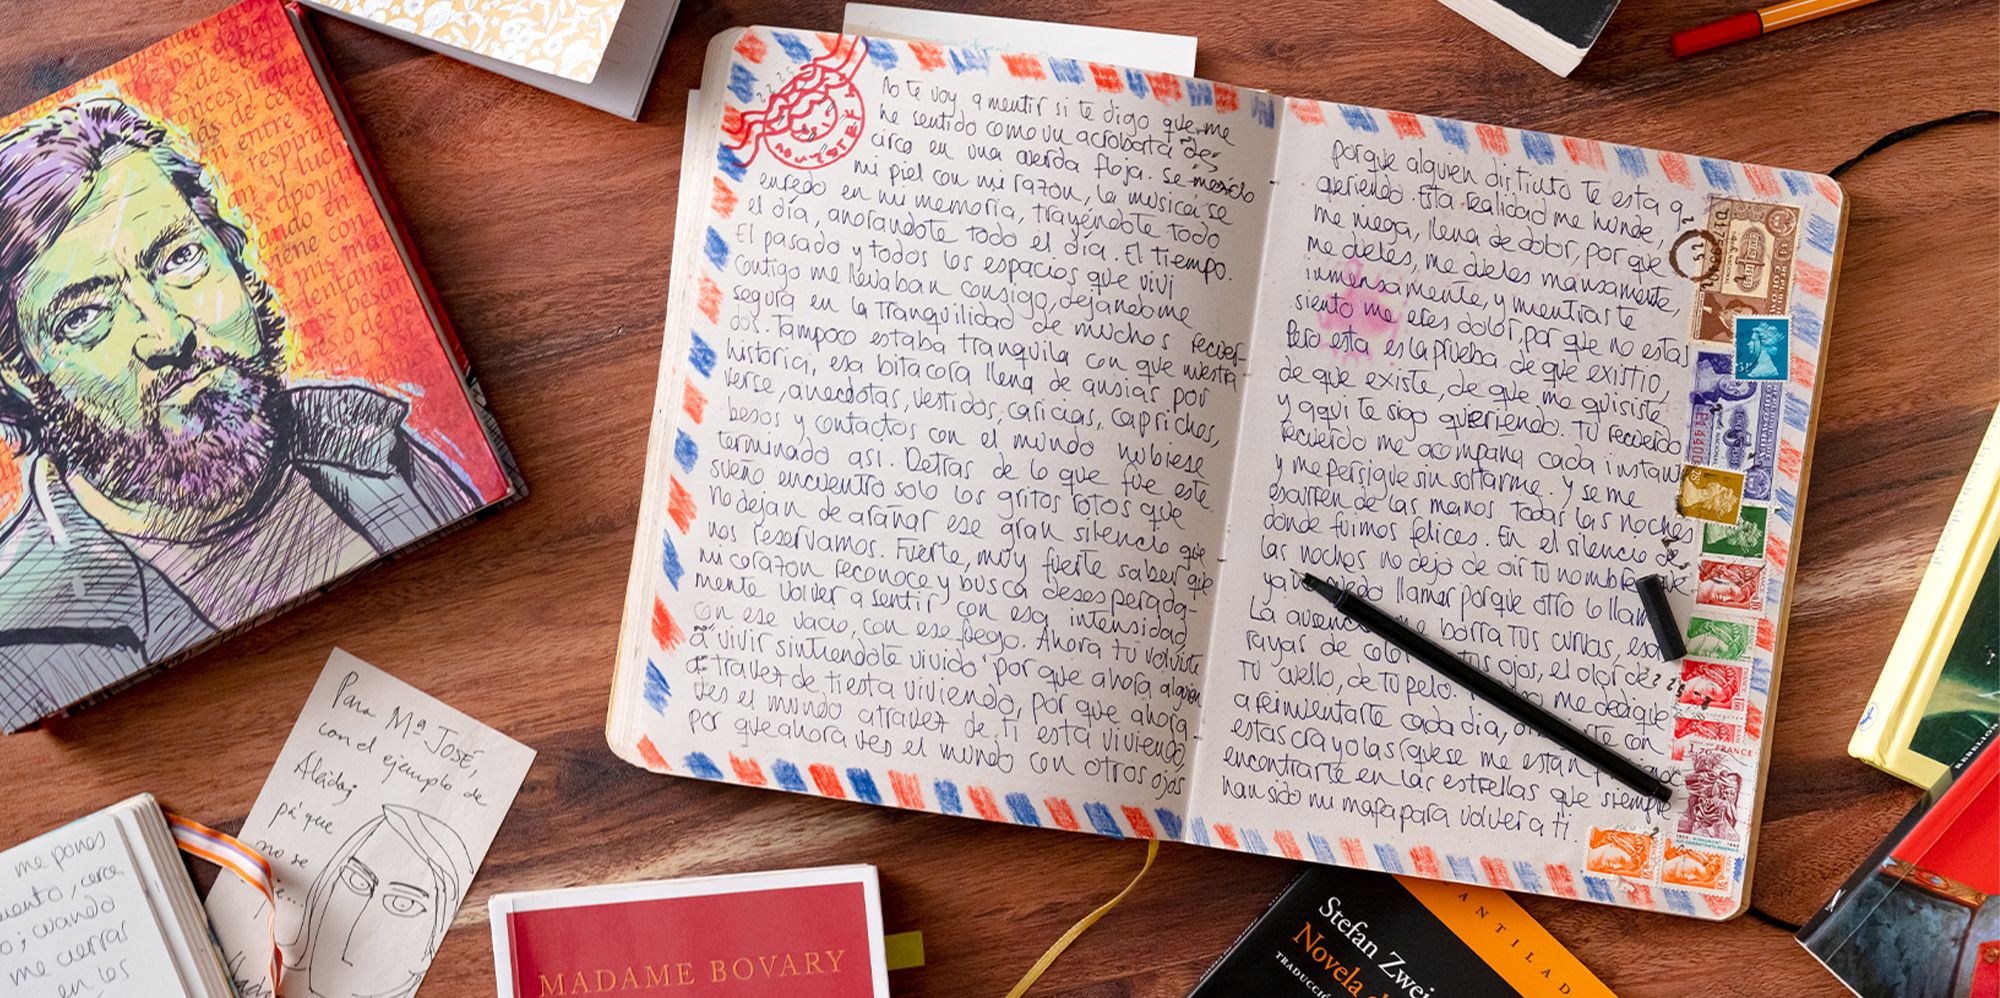 No te voy a mentir si te digo que me
he sentido como un acróbata de
circo en una cuerda floja. Se mezcló
mi piel con mi razón, la música se
enredo en mi memoria, trayéndote todo
el día, añorándote todo el día. El tiempo.
El pasado y todos los espacios que viví
contigo me llevaban consigo, dejándome
segura en la tranquilidad de muchos recuer-
dos. Tampoco estaba tranquila con que nuestra
historia, esa bitacora llena de ansias por
verse, anecdotas, vestidos, caricias, caprichos,
besos y contactos con el mundo hubiese
terminado así. Detras de lo que fue este
sueño encuentro solo los gritos rotos que
no dejan de arañar ese gran silencio que
nos reservamos. Fuerte, muy fuerte saber que
mi corazon reconoce y busca desesperada-
mente volver a sentir con esa intensidad,
con ese vacio, con ese fuego. Ahora tu volviste
a vivir sintiendote vivido por que ahora alguien
a travez de ti esta viviendo, por que ahora
ves el mundo atravez de ti esta viviendo,
por que ahora ves el mundo con otros ojos
porque alguien distinto te esta
queriendo. Esta realidad me hunde,
me niega, llena de dolor, por que
me dueles, me dueles mansamente,
inmensamente, y mientras te
siento me eres dolor, por que no estas
Pero esta es la prueba de que existio,
de que existe, de que me quisiste
y aqui te sigo queriendo. Tu recuerdo
recuerdo me acompaña cada instant
y me persigue sin soltarme. Y se me
escurren de las manos todas las noches
donde fuimos felices. En el silencio de
las noches no dejo de oir tu nombre que
ya llamar porque otro lo llam
La ausenc me borra tus curvas, esa
rayas de color tus ojos, el olor de
tu cuello, de tu pelo. me dedique
a reinventarte cada día, con
estas crayolas que se me estan
encontrarte en las estrellas que siempre
han sido mi mapa para volver a ti
Para Mª José,
con el ejemplo de
Aleida,
pa' que
no se
me pones
cerca
cuando
me cierras
en los
MADAME BOVARY
Stefan Zwei
Novela d
TRADUCCIÓ
ANTILAD
REBELIÓN
FRANCE